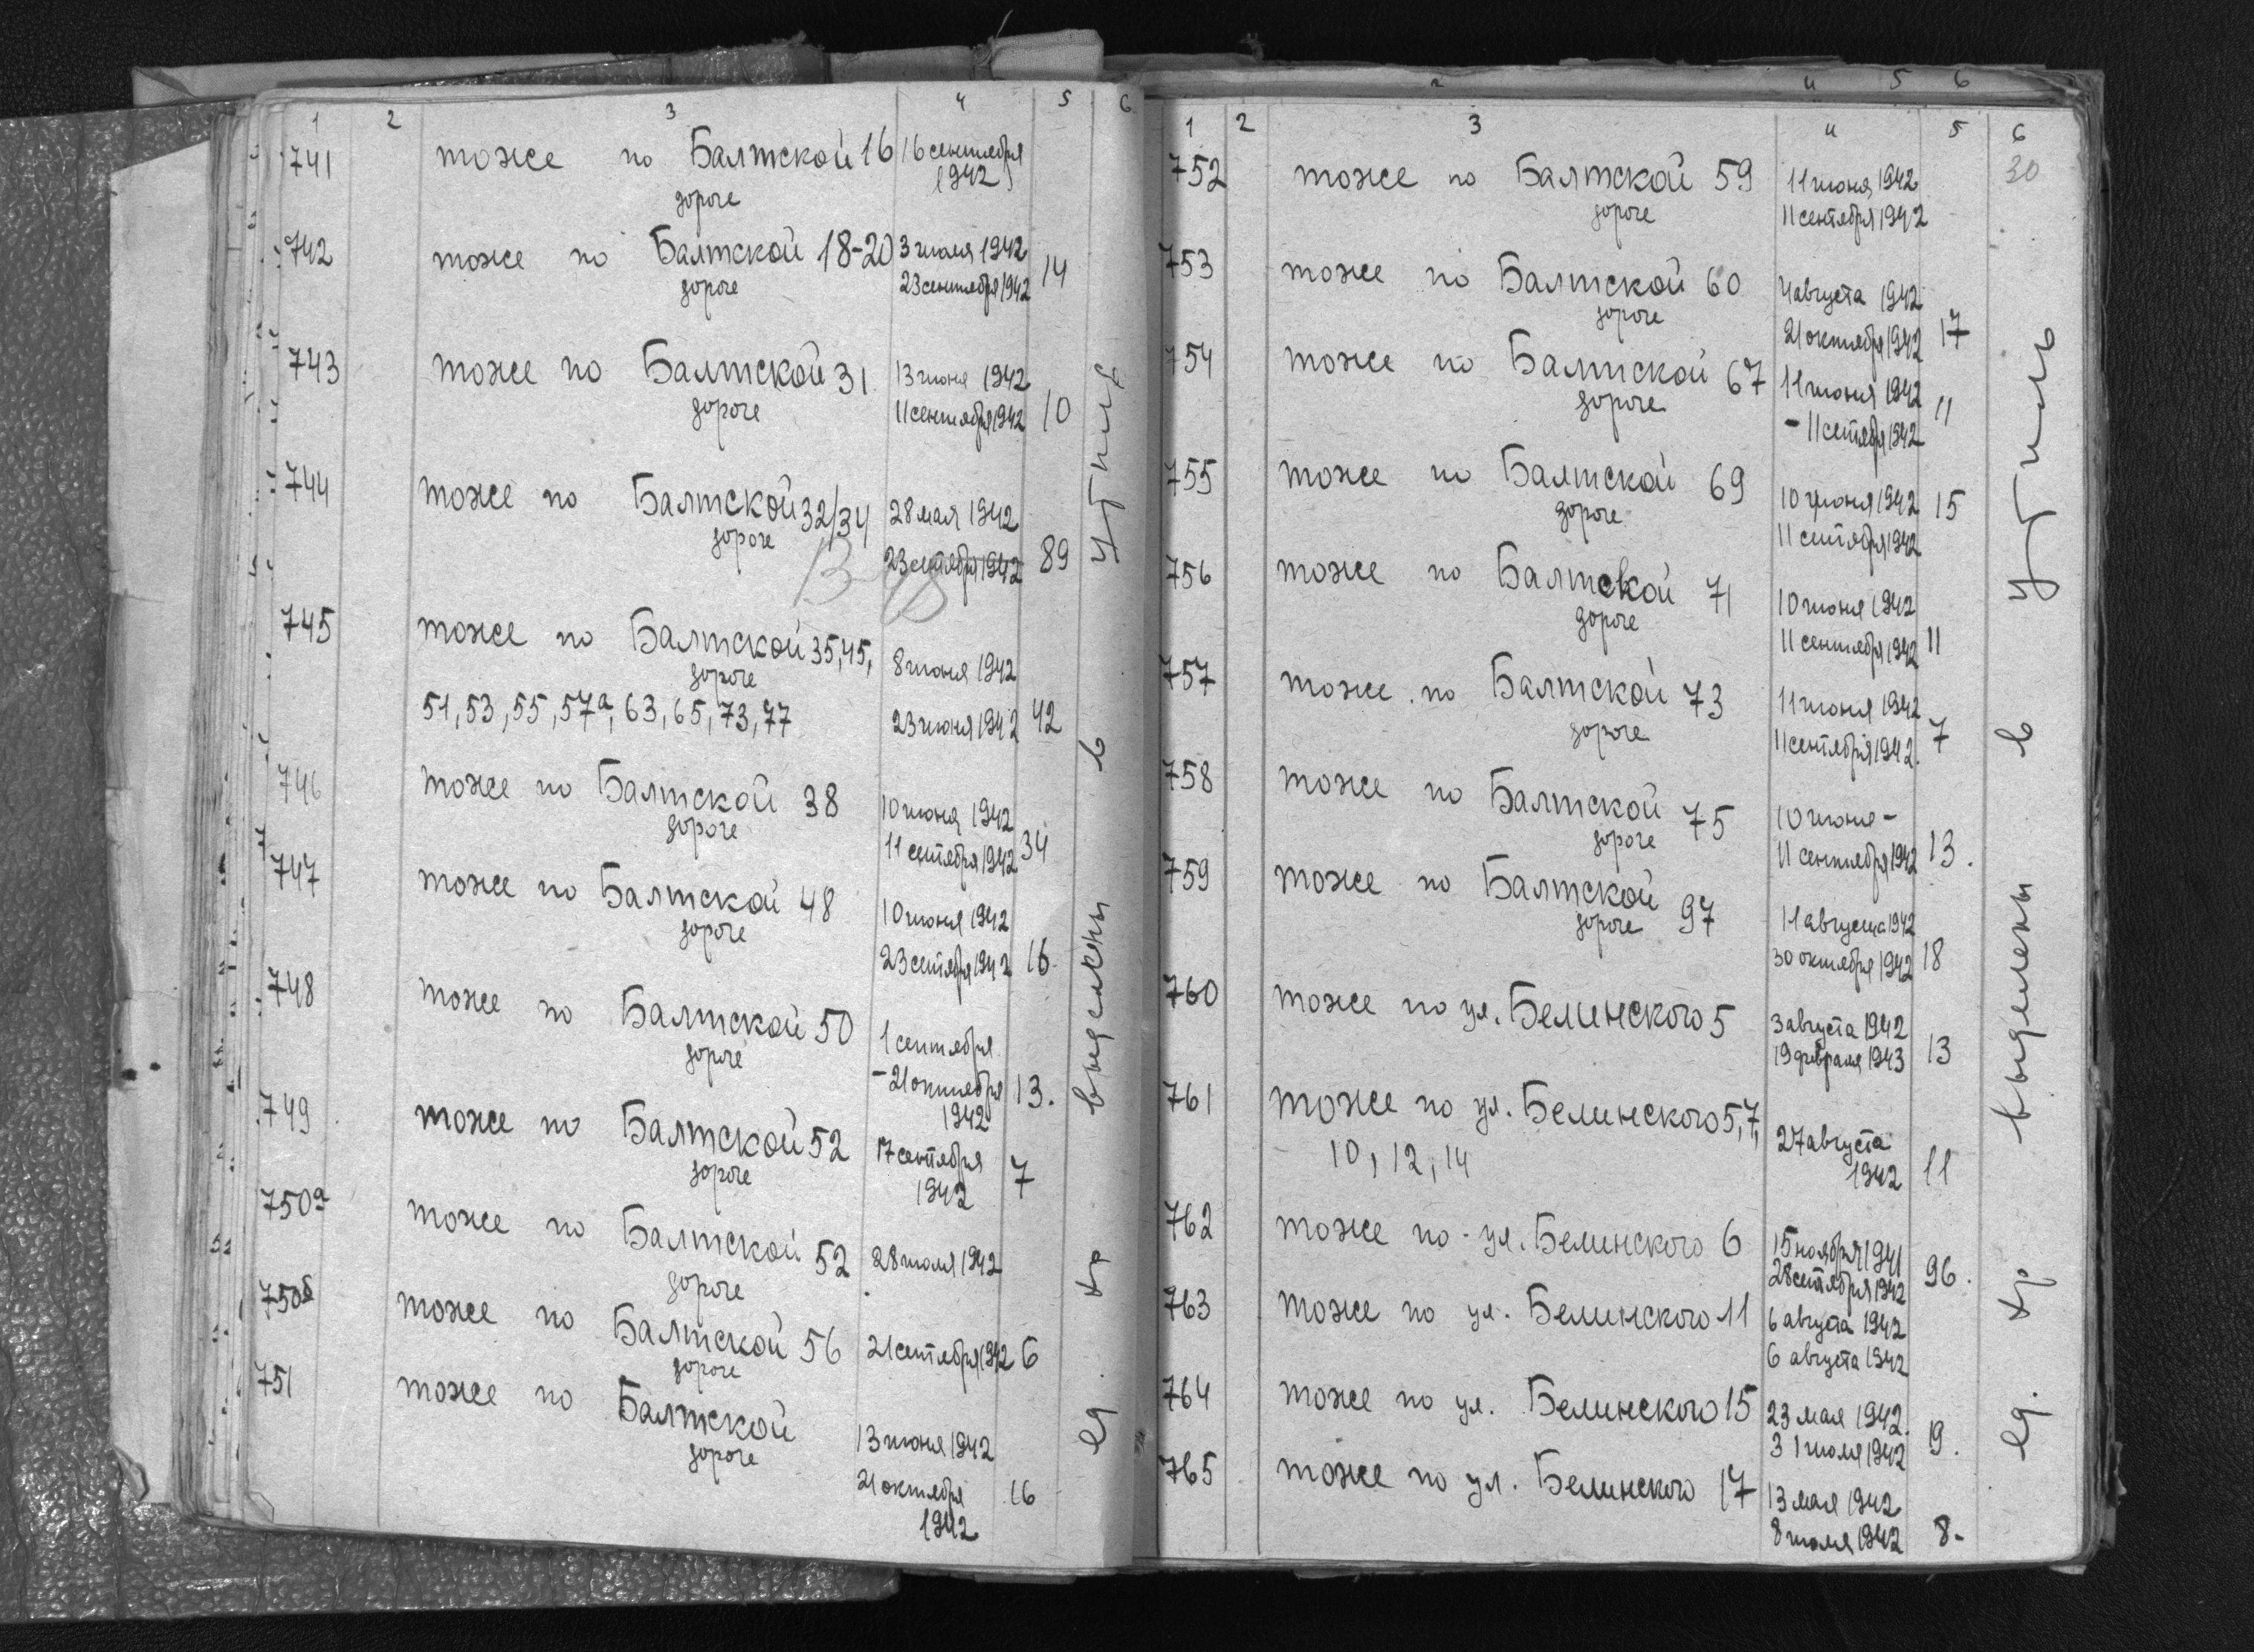 1 2 3 4 5 6
741 тоже по Балтской 16 16 сентября
дороге 1942
742 тоже по Балтской 18-20 3 июля 1942
дороге 23 сентября 1942 14
743 тоже по Балтской 31 13 июня 1942
дороге 11 сентября 1942 10
744 тоже по Балтской 32/34 28 мая 1942
дороге 23 сентября 1942 89
745 тоже по Балтской 35, 45, 8 июня 1942
дороге
51, 53, 55, 57а, 63, 65, 73, 77 23 июня 1942 42
746 тоже по Балтской 38 10 июня 1942
дороге 11 сентября 1942 34
747 тоже по Балтской 48 10 июня 1942
дороге 23 сентября 1942 16
748 тоже по Балтской 50 1 сентября
дороге - 21 октября 13.
1942
749 тоже по Балтской 52 17 сентября
дороге 1942 7
750а тоже по Балтской 52 28 июля 1942
дороге
750б тоже по Балтской 56 21 сентября 1942 6
дороге
751 тоже по Балтской 13 июня 1942
дороге
21 октября 16
1942
ед. хр выделены в утиль
1 2 3 4 5 6
30
752 тоже по Балтской 59 11 июня 1942
дороге 11 сентября 1942
753 тоже по Балтской 60 4 августа 1942
дороге 21 октября 1942 17
754 тоже по Балтской 67 11 июня 1942
дороге - 11 сетября 1942 11
755 тоже по Балтской 69 10 июня 1942 15
дороге 11 сентября 1942
756 тоже по Балтской 71 10 июня 1942
дороге 11 сентября 1942 11
757 тоже по Балтской 73 11 июня 1942
дороге 11 сентября 1942. 7
758 тоже по Балтской 75 10 июня -
дороге 11 сентября 1942 13.
759 тоже по Балтской 97 11 августа 1942
дороге 30 октября 1942 18
760 тоже по ул. Белинского 5 3 августа 1942
19 февраля 1943 13
761 тоже по ул. Белинского 5, 7,
10, 12, 14 27 августа
1942 11
762 тоже по ул. Белинского 6 15 ноября 1941
28 сентября 1942 96.
763 тоже по ул. Белинского 11 6 августа 1942
6 августа 1942
764 тоже по ул. Белинского 15 23 мая 1942.
31 июля 1942 19.
765 тоже по ул. Белинского 17 13 мая 1942
8 июля 1942 8-
ед. хр. выделены в утиль